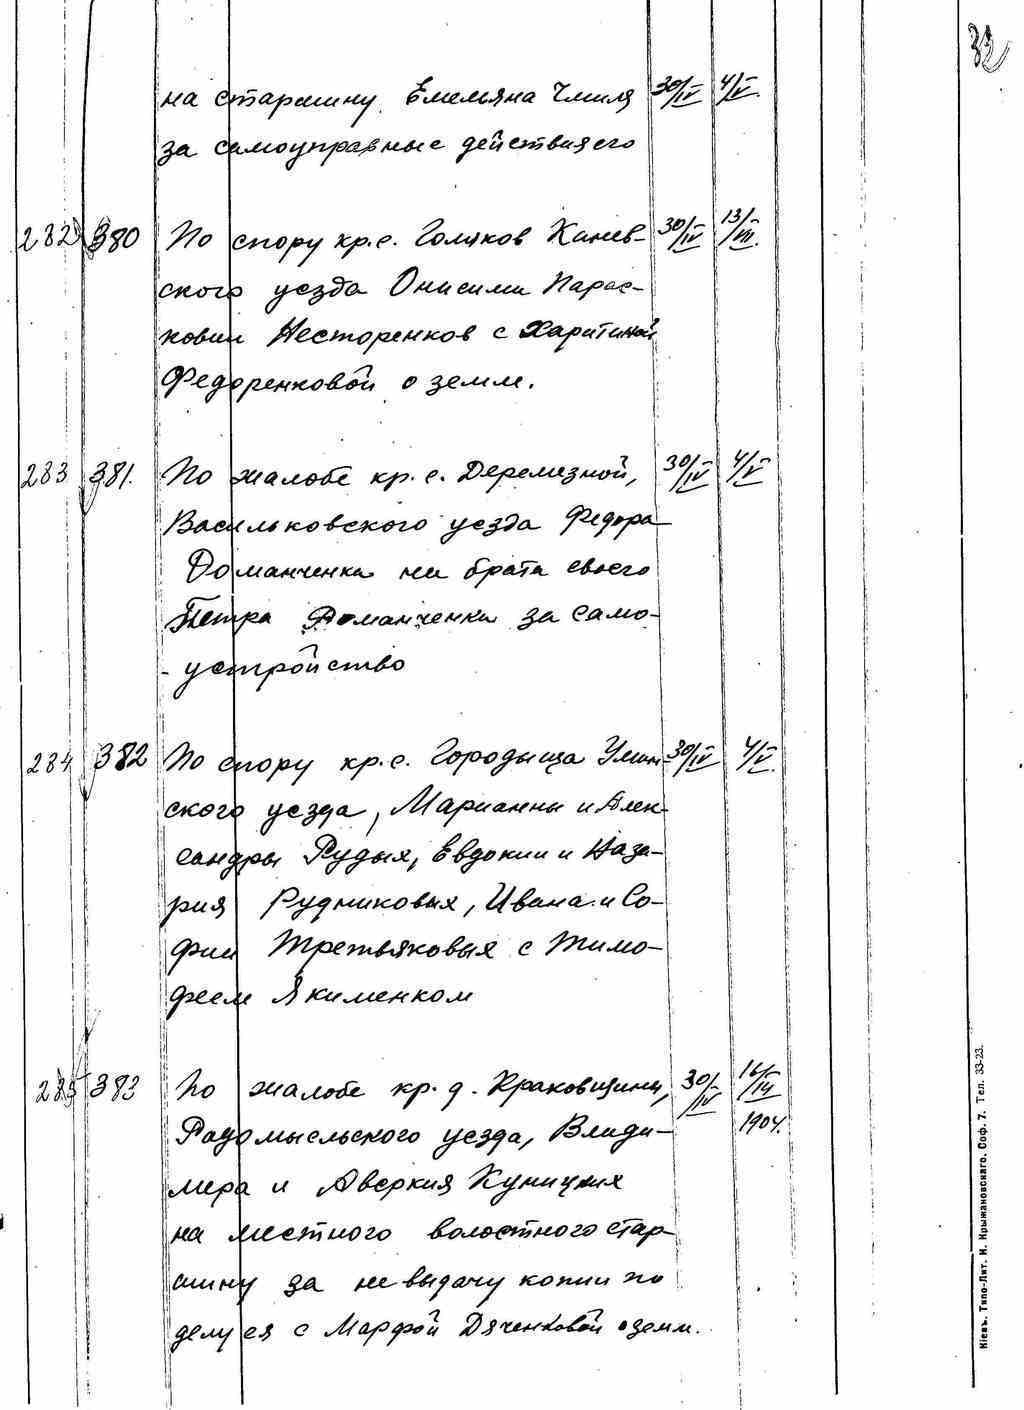 32
на старшину Емельяна Чмиля 30/IV 4/V.
за самоуправные действия его
282 380 По спору кр. с. Голяков Канев- 30/IV 13/VIII.
ского уезда Онисима Парас-
ковии Несторенков с Харитиной
Федоренковой о земли.
283 381. По жалобе кр. с. Деремезной, 30/IV 4/V
Васильковского уезда Федора
Романченка на брата своего
Петра Романченка за само-
- устройство
284 382 По спору кр. с. Городыща Уман 30/IV 4/V.
ского уезда, Марианны и Алек-
сандры Рудых, Евдокии и Наза-
рия Рудниковых, Ивана и Со-
фии Третьяковых с Тимо-
феем Якименком
285 383 По жалобе кр. д. Краковщины, 30/IV 16/III
1904.
Радомысльского уезда, Влади-
мера и Аверкия Куницких
на местного волостного стар-
шину за не выдачу копии по
делу ея с Марфой Дяченковой о земли.
Кіевъ. Типо-Лит. Н. Крыжановскаго. Соф. 7. Тел. 33-23.